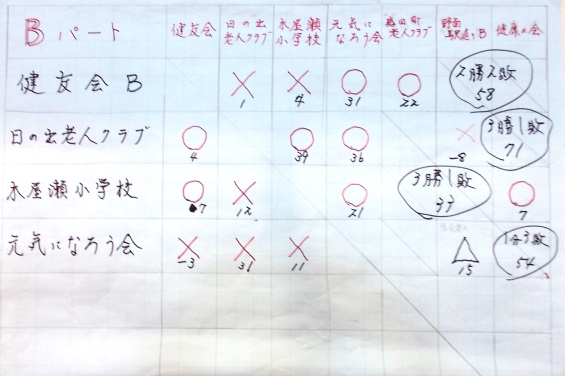 B パート 健友会 日の出老人クラブ 木屋瀬小学校 元気になろう会 老人クラブ 健康の会
健友会B × 1 × 4 ○ 31 ○ 22 2勝2敗 58
日の出老人クラブ ○ 4 ○ 39 ○ 36 × -8 3勝1敗 71
木屋瀬小学校 ○ 7 × 12 ○ 21 3勝1敗 33 ○ 7
元気になろう会 × -3 × 31 × 11 △ 15 1分3敗 54